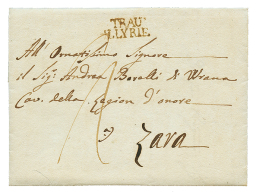 TRAU
ILLYRIE
All' Ornatissimo Signore
il Sigr Andrea Borelli di Wrana
Cav. della Legion d'onore
Zara